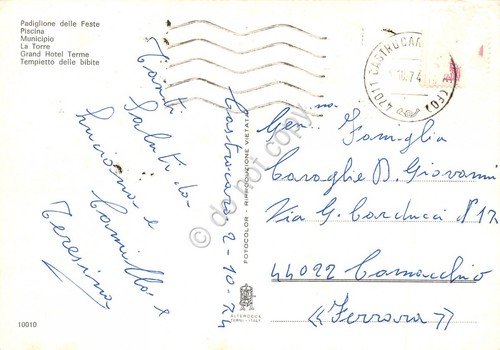 Padiglione delle Feste
Piscina
Municipio
La Torre
Grand Hotel Terme
Tempietto delle bibite
47011 CASTROCAR
(FO)
Tanti
Saluti da
Luciana e
Camillo e
Teresina
Castrocaro 2-10-74
FOTOCOLOR - RIPRODUZIONE VIETATA
do not copy
Gen.ma Famiglia
Caraghe D. Giovanni
Via G. Carducci n° 12
44022 Comacchio
«Ferrara»
ALTEROCCA
TERNI
10010